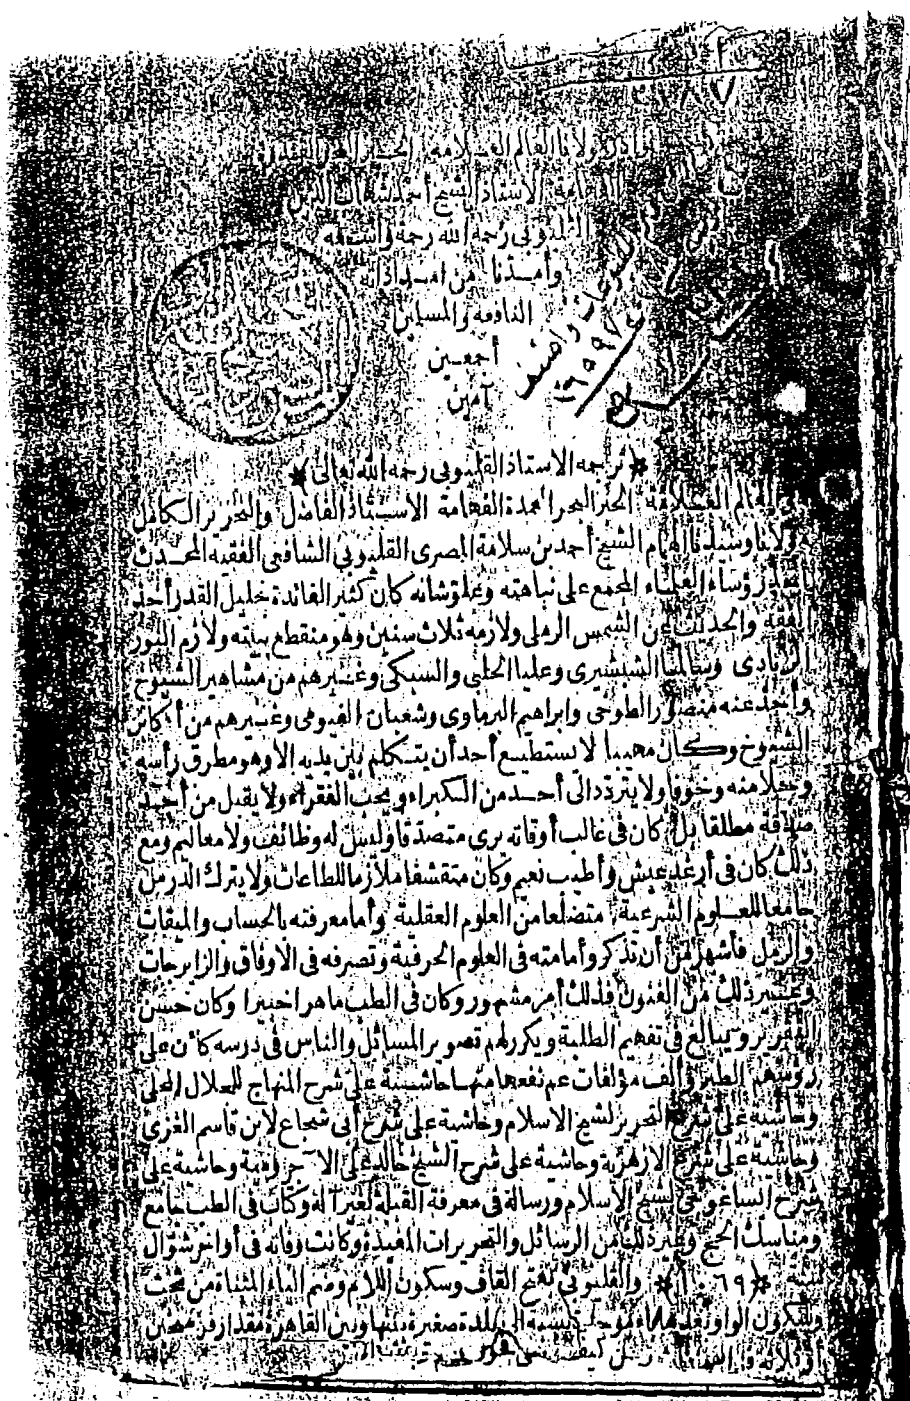 ٨٧
نوادر مولانا العالم العلامة الحبر البحر
الفهامة الاستاذ الشيخ أحمد شهاب الدين
القليوبى رحمه الله رحمة واسعة
وأمدنا من امداداته
النافعة والمسلمين
أجمعين
آمين
١٦٥٩٧٤
﴿ترجمة الاستاذ القليوبى رحمه الله تعالى﴾
العالم العلامة الحبر البحر العمدة الفهامة الاستاذ الفاضل والنحرير الكامل
مولانا وسيدنا الهمام الشيخ أحمد بن سلامة المصرى القليوبى الشافعى الفقيه المحدث
رؤساء العلماء المجمع على نباهته وعلو شانه كان كثير الفائدة جليل القدر أخذ
الفقه والحديث عن الشمس الرملى ولازمه ثلاث سنين وهو منقطع ببيته ولازم النور
الزيادى وسالما الشبشيرى وعليا الحلبى والسبكى وغيرهم من مشاهير الشيوخ
وأخذ عنه منصور الطوخى وابراهيم البرماوى وشعبان الفيومى وغيرهم من أكابر
الشيوخ وكان مهيبا لا يستطيع أحد أن يتكلم بين يديه الا وهو مطرق رأسه
وجلا منه وخوفا ولا يتردد الى أحد من الكبراء ويحب الفقراء ولا يقبل من أحد
صدقة مطلقا بل كان فى غالب أوقاته يرى متصدقا وليس له وظائف ولا معاليم ومع
ذلك كان فى أرغد عيش وأطيب نعيم وكان متقشفا ملازما للطاعات ولا يترك الدرس
جامعا للعلوم الشرعية متضلعا من العلوم العقلية وأما معرفته بالحساب والميقات
والرمل فأشهر من أن تذكر وأما مته فى العلوم الحرفية وتصرفه فى الأوفاق والزايرجات
وغير ذلك من الفنون فذلك أمر مشهور وكان فى الطب ماهرا خبيرا وكان حسن
التقرير ويبالغ فى تفهيم الطلبة ويكرر لهم تصوير المسائل والناس فى درسه كأن على
رؤسهم الطير وألف مؤلفات عم نفعها منها حاشية على شرح المنهاج للجلال المحلى
وحاشية على شرح التحرير لشيخ الاسلام وحاشية على شرح أبى شجاع لابن قاسم الغزى
وحاشية على شرح الازهرية وحاشية على شرح الشيخ خالد على الآجرومية وحاشية على
شرح ايساغوجى لشيخ الاسلام ورسالة فى معرفة القبلة بغير آلة وكتاب فى الطب جامع
ومناسك الحج وغير ذلك من الرسائل والتحريرات المفيدة وكانت وفاته فى أواخر شوال
سنة ﴿١٠٦٩﴾ والقليوبى بفتح القاف وسكون اللام وضم الياء المثناة من تحت
وسكون الواو بعدها باء موحدة نسبة الى بلدة صغيرة بينها وبين القاهرة مقدار فرسخين
أو ثلاثة